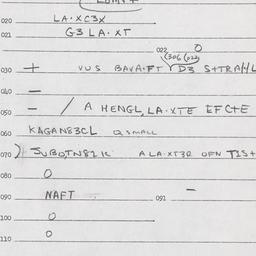 020 LA·XC3X
021 G3 LA·XT
022 0
(306 (022
030 + VUS BAVA·FT D3 S+TRA
040 –
050 – / A HENGL, LA·XTE EFC+E
060 KAGAN83CL Q SMALL
070 ) SUBOTN821C A LA·XT3R OFN T1S+
080 0
090 NAFT 091 –
100 0
110 0